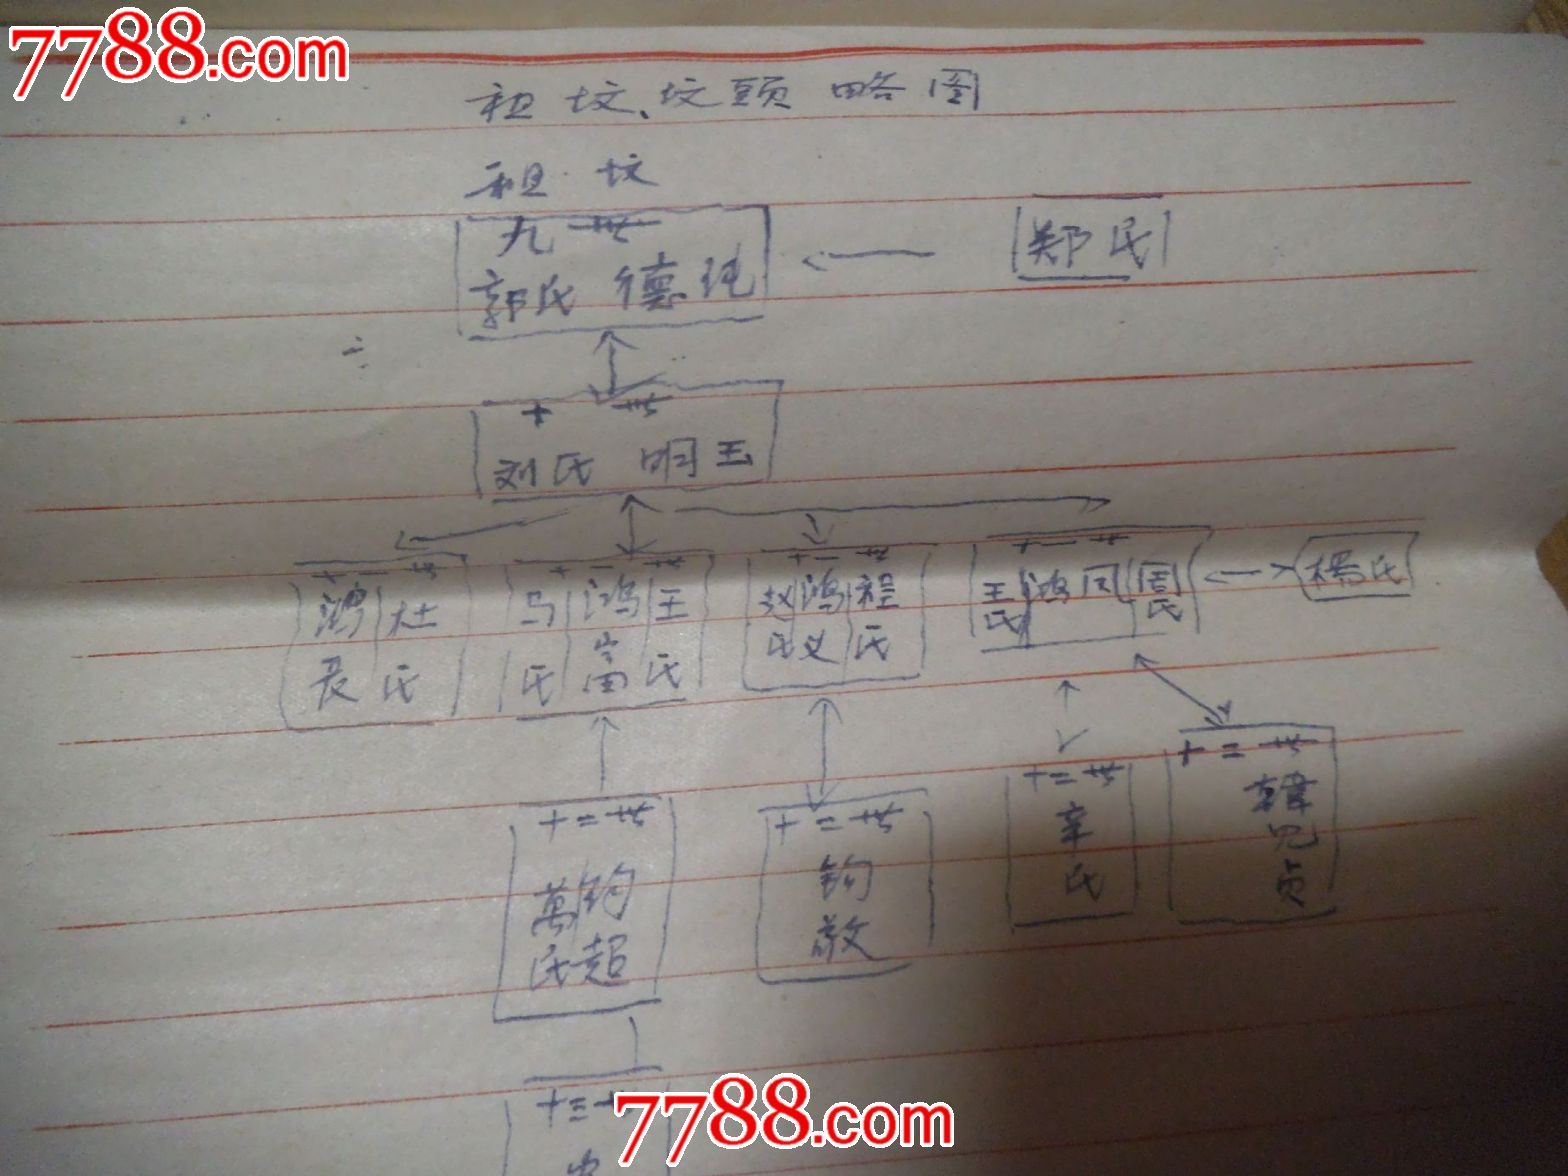 7788.com
祖坟、坟頭略图
祖坟
九世
郭氏 德
郑氏
十世
刘氏 明玉
十一世
鴻 杜
長 氏
十一世
马 鸿 王
氏 富 氏
十一世
赵 鸿 程
氏 义 氏
十一世
王氏 鸿同 周氏
楊氏
十二世
萬 钧
氏 超
十二世
钧
敬
十二世
辛
氏
十二世
韓
十三
7788.com